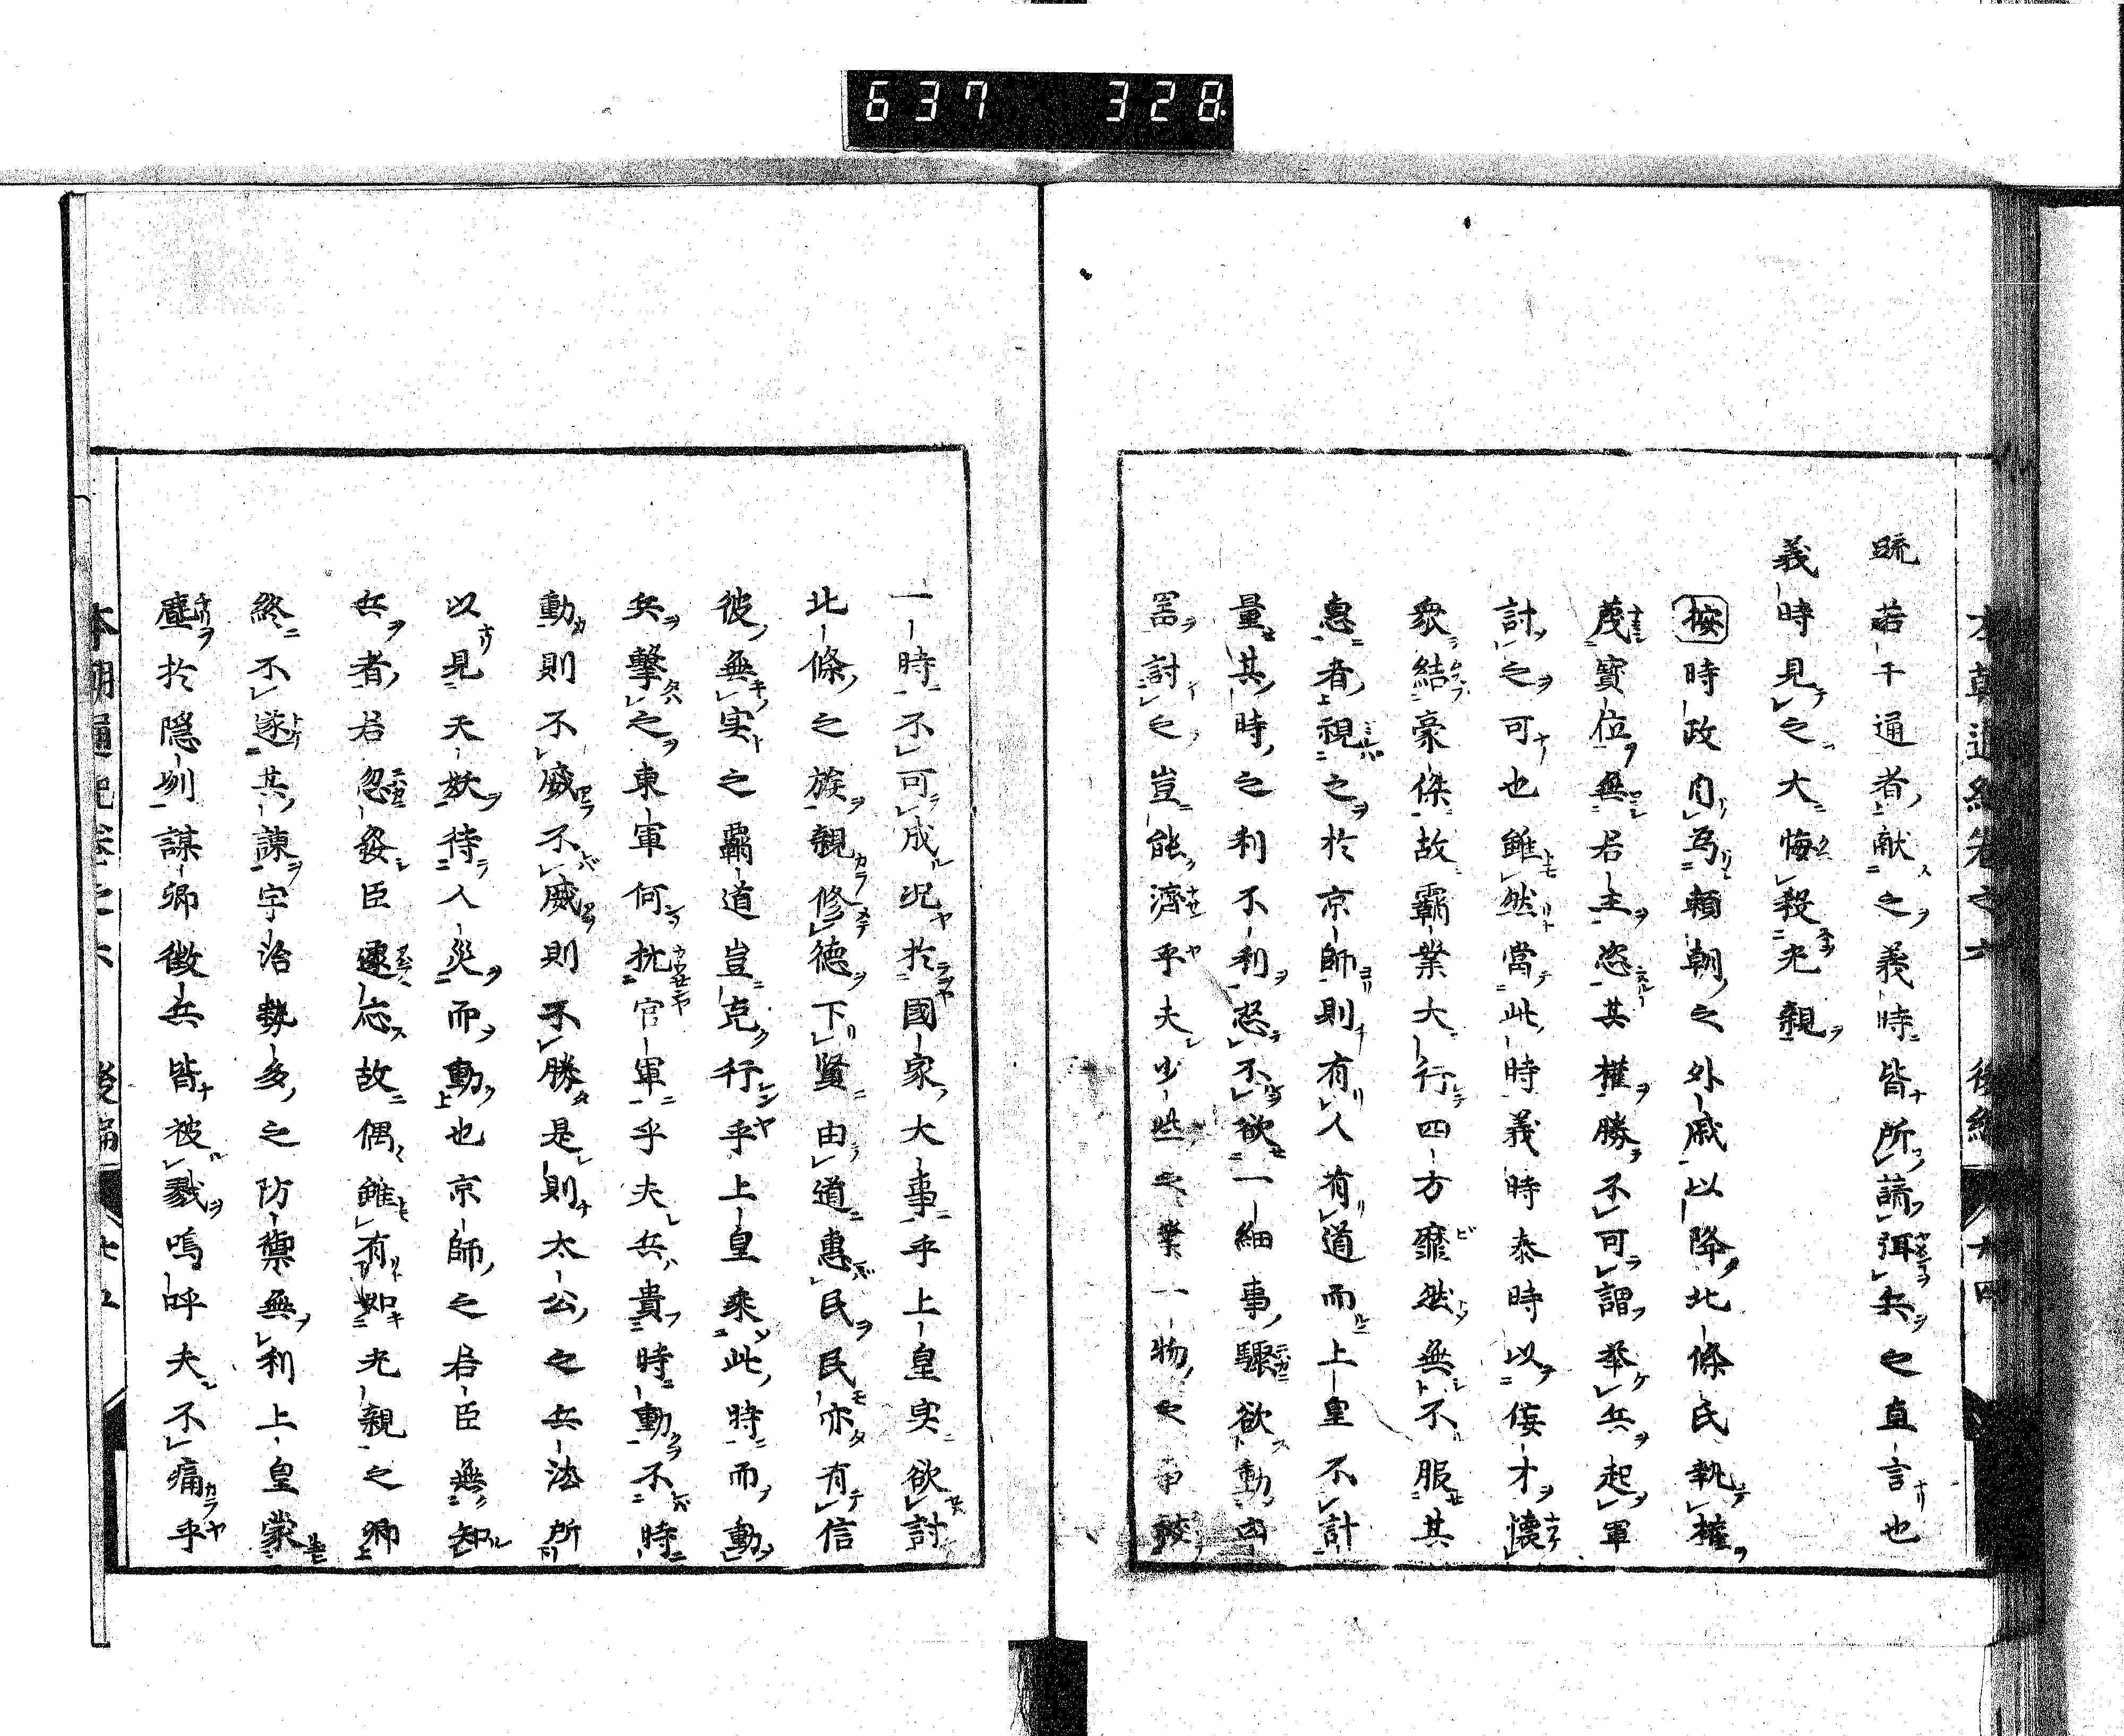 637 328.
本朝通紀卷之六 後編 十四
疏若干通者献之義時皆所諌弭兵之直言也
義時見之大悔殺光親
按時政自為頼朝之外戚以降北條氏執權
蔑寳位無君主恣其權勝不可謂挙兵起軍
討之可也雖然當此時義時泰時以侫才懐
衆結豪傑故霸業大行四方靡然無不服其
惠者視之於京師則有人有道而上皇不計
量其時之利不利忍不欲一細事驟欲動凶
噐討之豈能濟乎夫少些之業一物之
一時不可成况於國家大事乎上皇実欲討
北條之族親修徳下賢由道惠民民亦有信
彼無実之霸道豈克行乎上皇乘此時而動
兵擊之東軍何抗官軍乎夫兵貴時動不時
動則不威不威則不勝是則太公之兵法所
以見天妖待人災而動也京師之君臣無知
兵者君忽姦臣逐忘故偶雖有如光親之卿
終不遂其諌宇治勢多之防禦無利上皇蒙
塵於隠刕謀卿徴兵皆被戮嗚呼夫不痛乎
本朝通紀卷之六 後編 十五